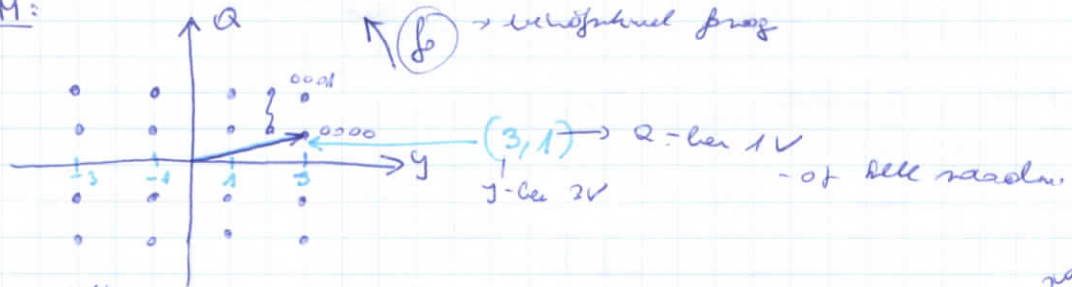 M:
Q
f₀ →
0001
0000
(3,1) → Q-ban 1V
-3 -1 1 3 I
I-ben 3V
-ot kell